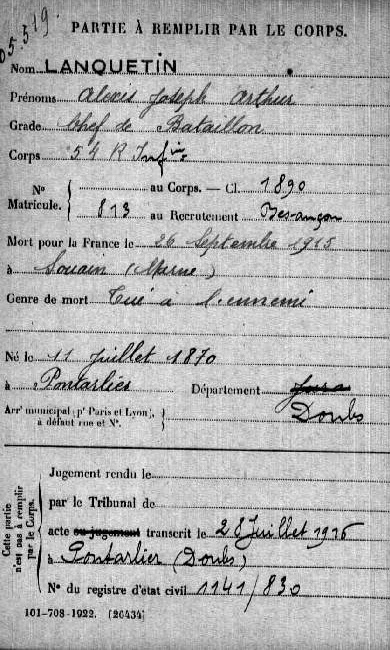 05.519.
PARTIE À REMPLIR PAR LE CORPS.
Nom LANQUETIN
Prénoms Alexis Joseph Arthur
Grade Chef de Bataillon
Corps 54 R Infie
No Matricule. { au Corps. — Cl. 1890
813 au Recrutement Besançon
Mort pour la France le 26 Septembre 1915
à Souain (Marne)
Genre de mort Tué à l'ennemi
Né le 11 Juillet 1870
à Pontarlier Département Jura
Arrt municipal (pr Paris et Lyon), à défaut rue et No. } Doubs
Cette partie n'est pas à remplir par le Corps.
Jugement rendu le
par le Tribunal de
acte ou jugement transcrit le 28 Juillet 1916
à Pontarlier (Doubs)
No du registre d'état civil 1141/830
101-708-1922. [26434]